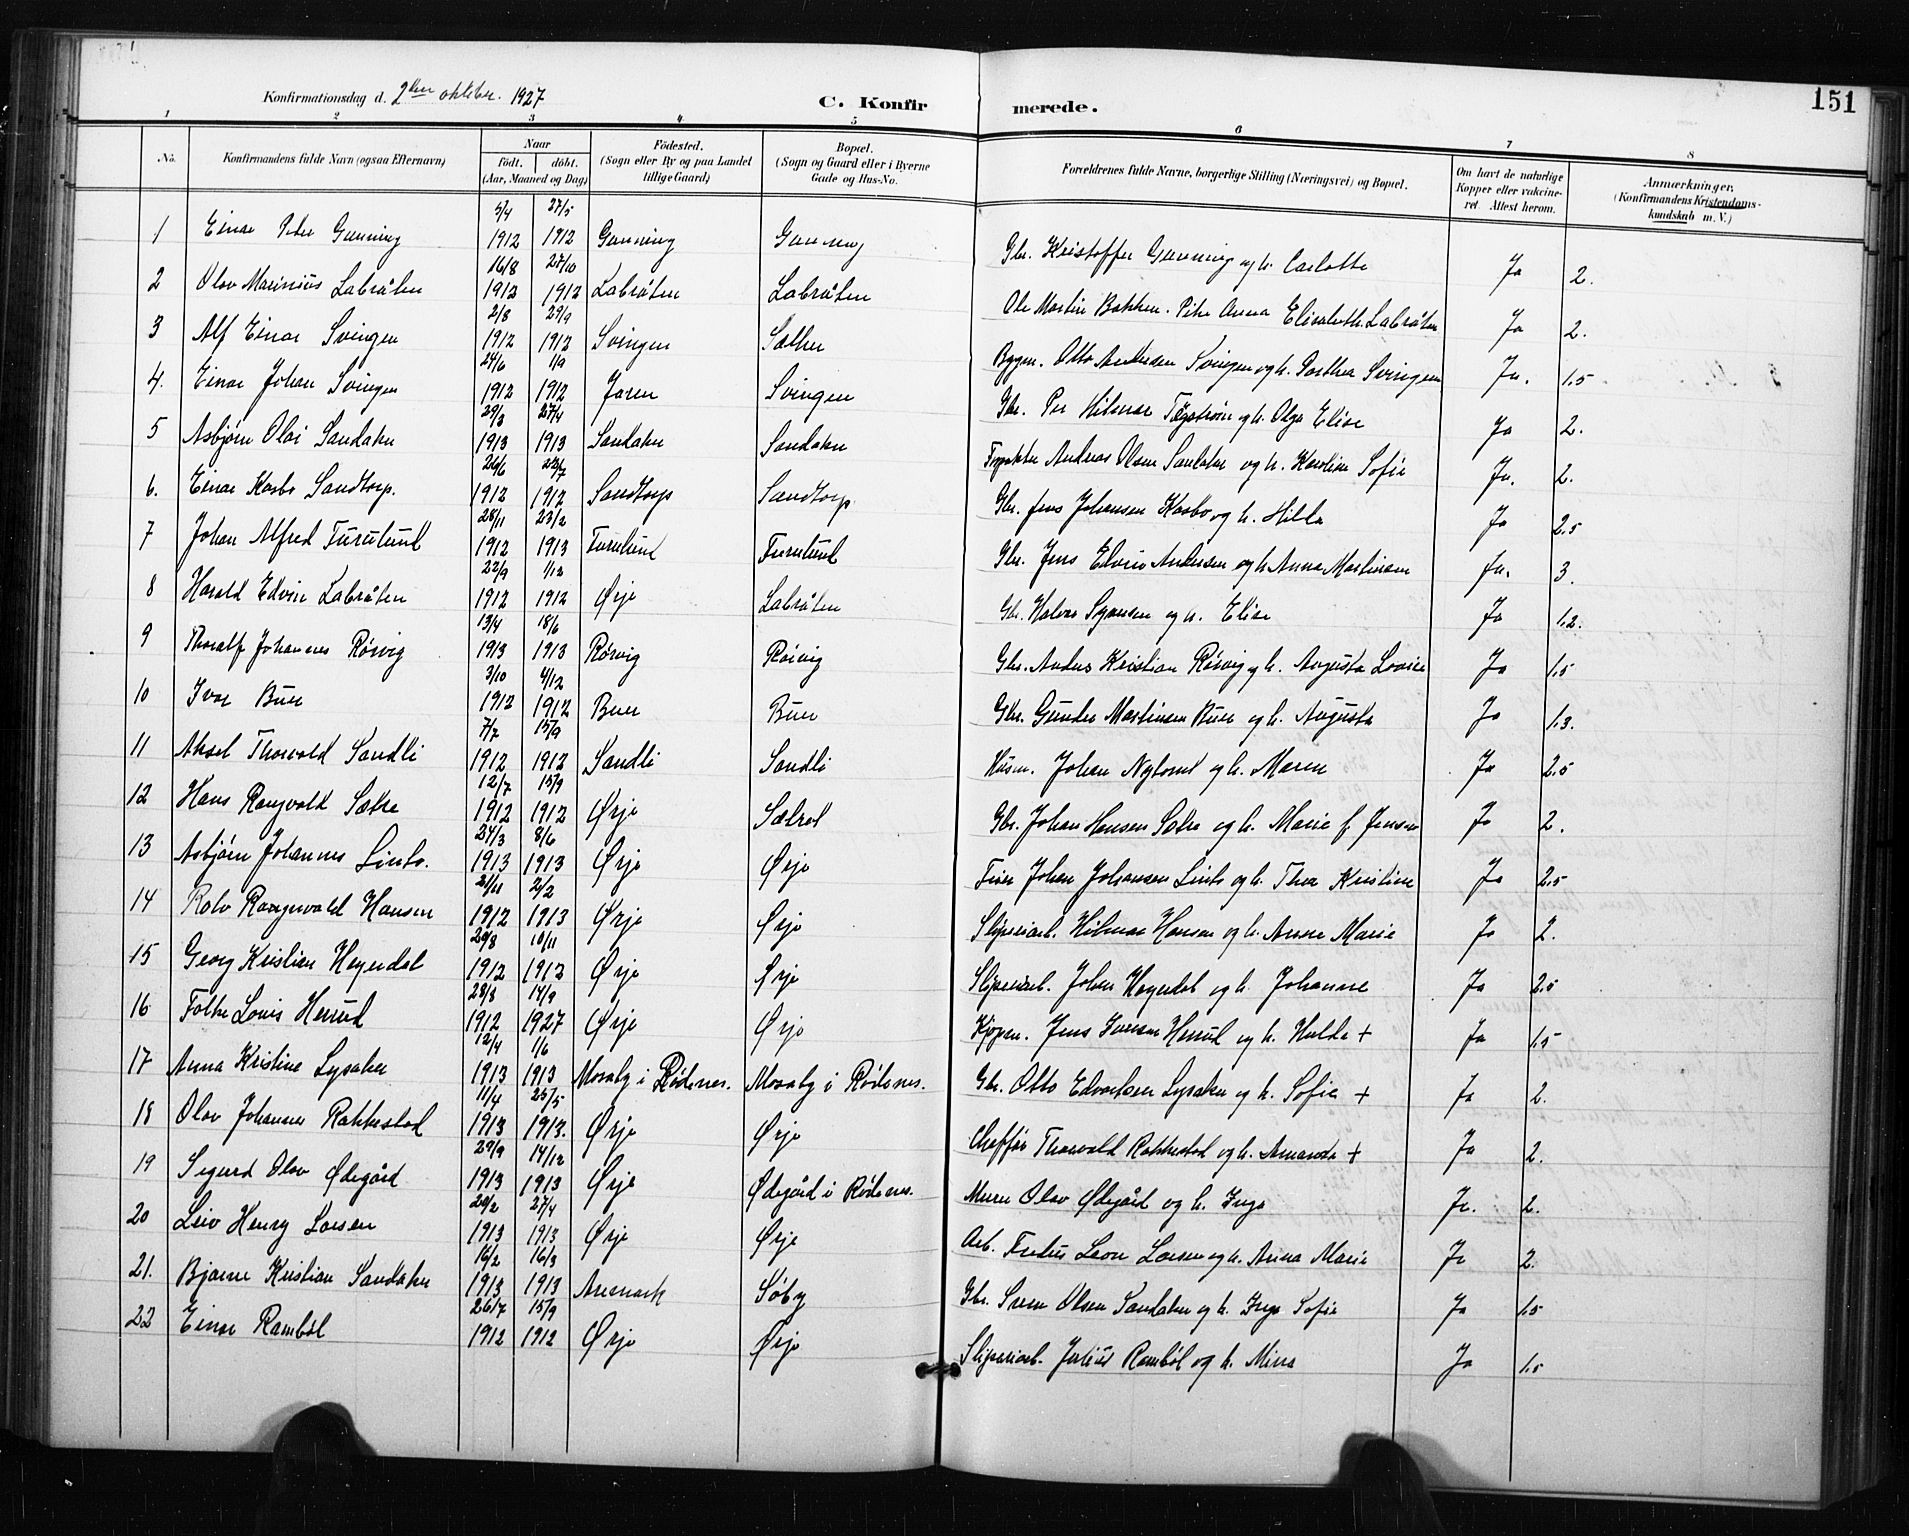 151
Konfirmationsdag d. 2den oktober. 1927 C. Konfirmerede.
1 2 3 4 5 6 7 8
No. Konfirmandens fulde Navn (ogsaa Efternavn) Naar født. døbt. (Aar, Maaned og Dag) Fødested. (Sogn eller By og paa Landet tillige Gaard) Bopæl. (Sogn og Gaard eller i Byerne Gade og Hus-No. Forældrenes fulde Navne, borgerlige Stilling (Næringsvei) og Bopæl. Om havt de naturlige Kopper eller vakcineret. Attest herom. Anmærkninger. (Konfirmandens Kristendomskundskab m. V.)
1 Einar Peter Gunning 5/4 1912 27/5 1912 Gunning Gunning Gbr. Kristoffer Gunning og h. Carlotte Ja 2.
2 Olav Marinius Labråten 16/8 1912 27/10 1912 Labråten Labråten Ole Martin Bakken. Pike Anna Elisabeth Labråten Ja 2.
3 Alf Einar Svingen 2/8 1912 29/9 1912 Svingen Sæther Bygm. Otto Andersen Svingen og h. Svingen Ja. 1.5
4. Einar Johan Svingen 24/6 1912 1/9 1912 Jaren Svingen Gbr. Per Hilmar og h. Olga Elise Ja 2.
5 Asbjørn Olai Sandaker 29/3 1913 27/4 1913 Sandaker Sandaker Andreas Olsen Sandaker og h. Karoline Sofie Ja. 2.
6. Einar Kasbo Sandtorp. 26/6 1912 1912 Sandtorp Sandtorp Gbr. Jens Johansen Kasbo og h. Hilda Ja 2.5
7 Johan Alfred Furulund 28/11 1912 23/2 1913 Furulund Furulund Gbr. Jens Edvin Andersen og h. Anna Martinsen Ja. 3.
8 Harald Edvin Labråten 22/9 1912 1/12 1912 Ørje Labråten Gbr. Halvor og h. Elise Ja 1.2.
9 Thoralf Johannes Rørvig 13/4 1913 18/6 1913 Rørvig Rörvig Gbr. Anders Kristian Rörvig og h. Augusta Lovise Ja 1.5
10 Ivar Buer 3/10 1912 4/12 1912 Buer Buer Gbr. Gunder Martinsen Buer og h. Augusta Ja 1.3.
11 Aksel Thorvald Sandli 7/7 1912 15/9 1912 Sandli Sandli Husm. Johan og h. Maren Ja 2.5
12 Hans Rangvald Sætre 12/7 1912 15/9 1912 Ørje Gbr. Johan Hansen Sætre og h. Marie f. Jensen Ja 2.
13 Asbjørn Johannes Linto. 24/3 1913 8/6 1913 Ørje Ørje Johan Johansen Linto og h. Thea Kristine Ja 2.5
14 Rolv Rangnvald Hansen 21/11 1912 2/2 1913 Ørje Ørje Sliperiarb. Hilmar Hansen og h. Anne Marie Ja 2.
15 Georg Kristian Heyerdal 29/8 1912 10/11 1912 Ørje Ørje Sliperiarb. Johan Heyerdal og h. Johanne Ja 2.5
16 Folke Louis Herrud 28/8 1912 14/9 1927 Ørje Ørje Kjøpm. Jens Iversen Herrud og h. Hulda + Ja 1.5
17 Anna Kristine Lysaker 12/4 1913 1/6 1913 Mosaby i Rødenes. Mosaby i Rødenes. Gbr. Otto Edvardsen Lysaker og h. Sofie + Ja 2.
18 Olav Johannes Rakkestad 11/4 1913 25/5 1913. Ørje Ørje Chaffør Thorvald Rakkestad og h. Amanda + Ja 2.
19 Sigurd Olav Ødegård 29/9 1913 14/12 1913 Ørje Ødegård i Rødenes. Murer Olav Ødegård og h. Inga Ja. 2.
20 Leiv Henry Larsen 20/2 1913 27/4 1913 Ørje Ørje Arb. Leon Larsen og h. Anna Marie Ja 2.
21. Bjarne Kristian Sandaker 16/2 1913 16/3 1913 Aremark Søby Gbr. Sven Olsen Sandaker og h. Inga Sofie Ja 1.5
22 Einar Rambøl 26/7 1912 15/9 1912 Ørje Ørje Sliperiarb. Julius Rambøl og h. Mina Ja 1.5